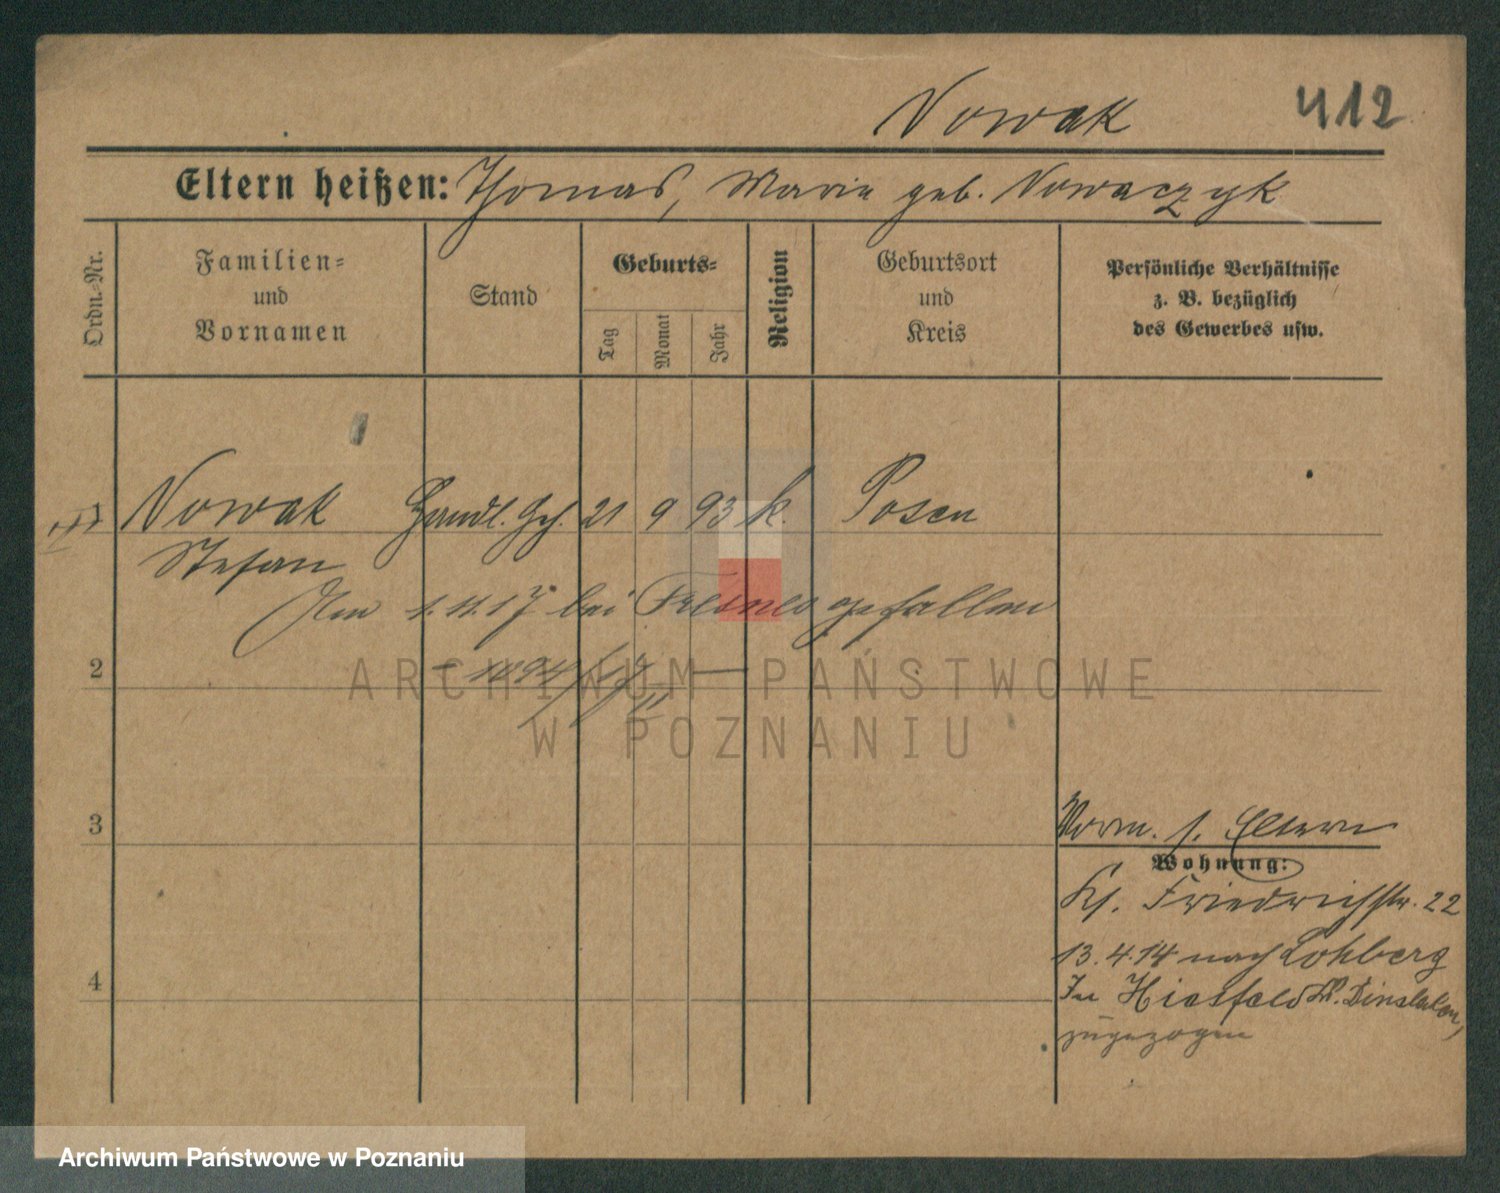 Nowak 412
Eltern heißen: Thomas, Marie geb. Nowaczyk
Ordn.-Nr.
Familien-
und
Vornamen
Stand
Geburts-
Tag
Monat
Jahr
Religion
Geburtsort
und
Kreis
Persönliche Verhältnisse
z. B. bezüglich
des Gewerbes usw.
1 Nowak Handl. Geh. 21 9 93 k. Posen
Stefan
Am 1.11.17 bei gefallen
2
ARCHIWUM PAŃSTWOWE
W POZNANIU
3
4
Vorm. s. Eltern
Wohnung:
Kl. Friedrichstr. 22
13.4.14 nach Lohberg
In Hiesfeld Kr. Dinslaken,
zugezogen
Archiwum Państwowe w Poznaniu